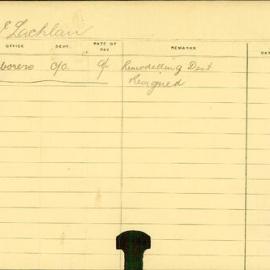 Lachlan
OFFICE DEPT. RATE OF PAY REMARKS DAT
borers 0/0 9/- Remodelling Dept
Resigned